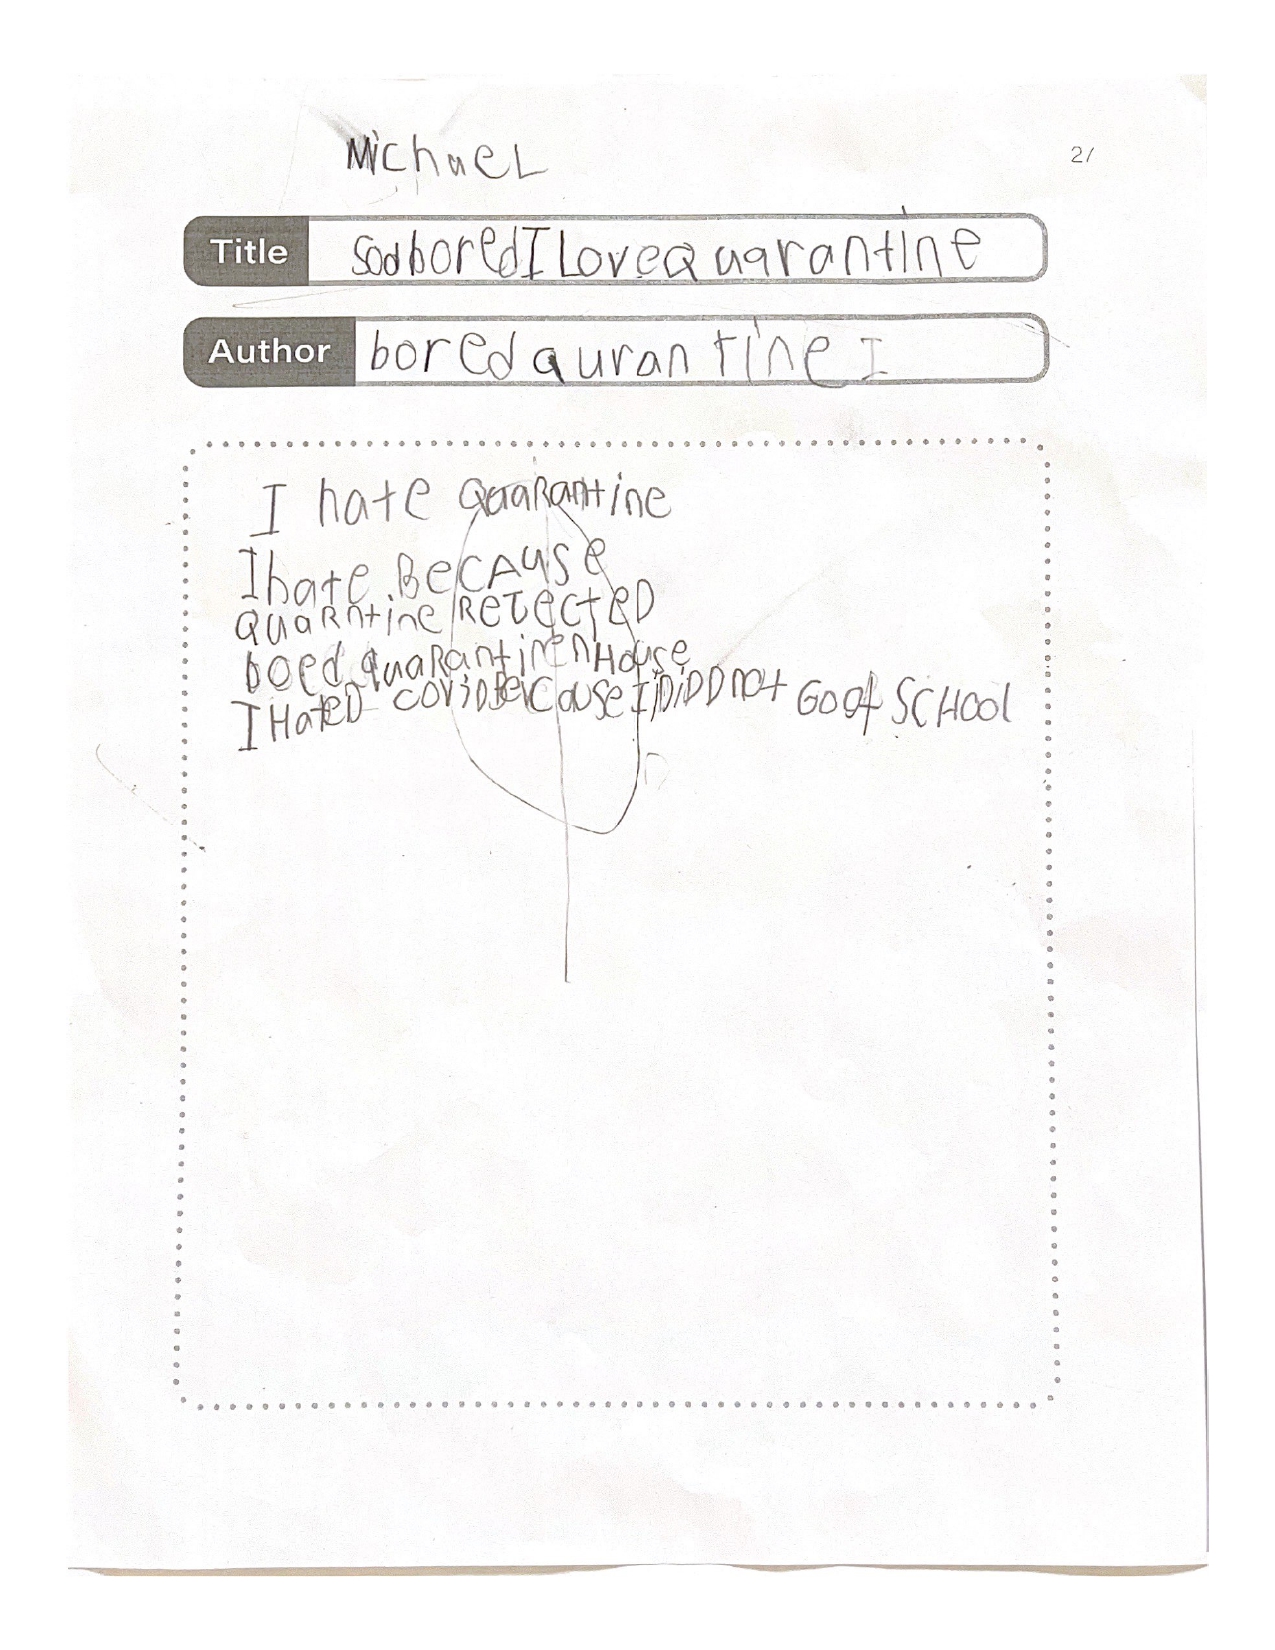 Michael
21
Title sodboredILovequarantine
Author bored qurantine I
I hate Quarantine
I hate Because
quarntine Rejected
boed quarantine n House
I Hated covid Because I DiDD not Go of SCHool